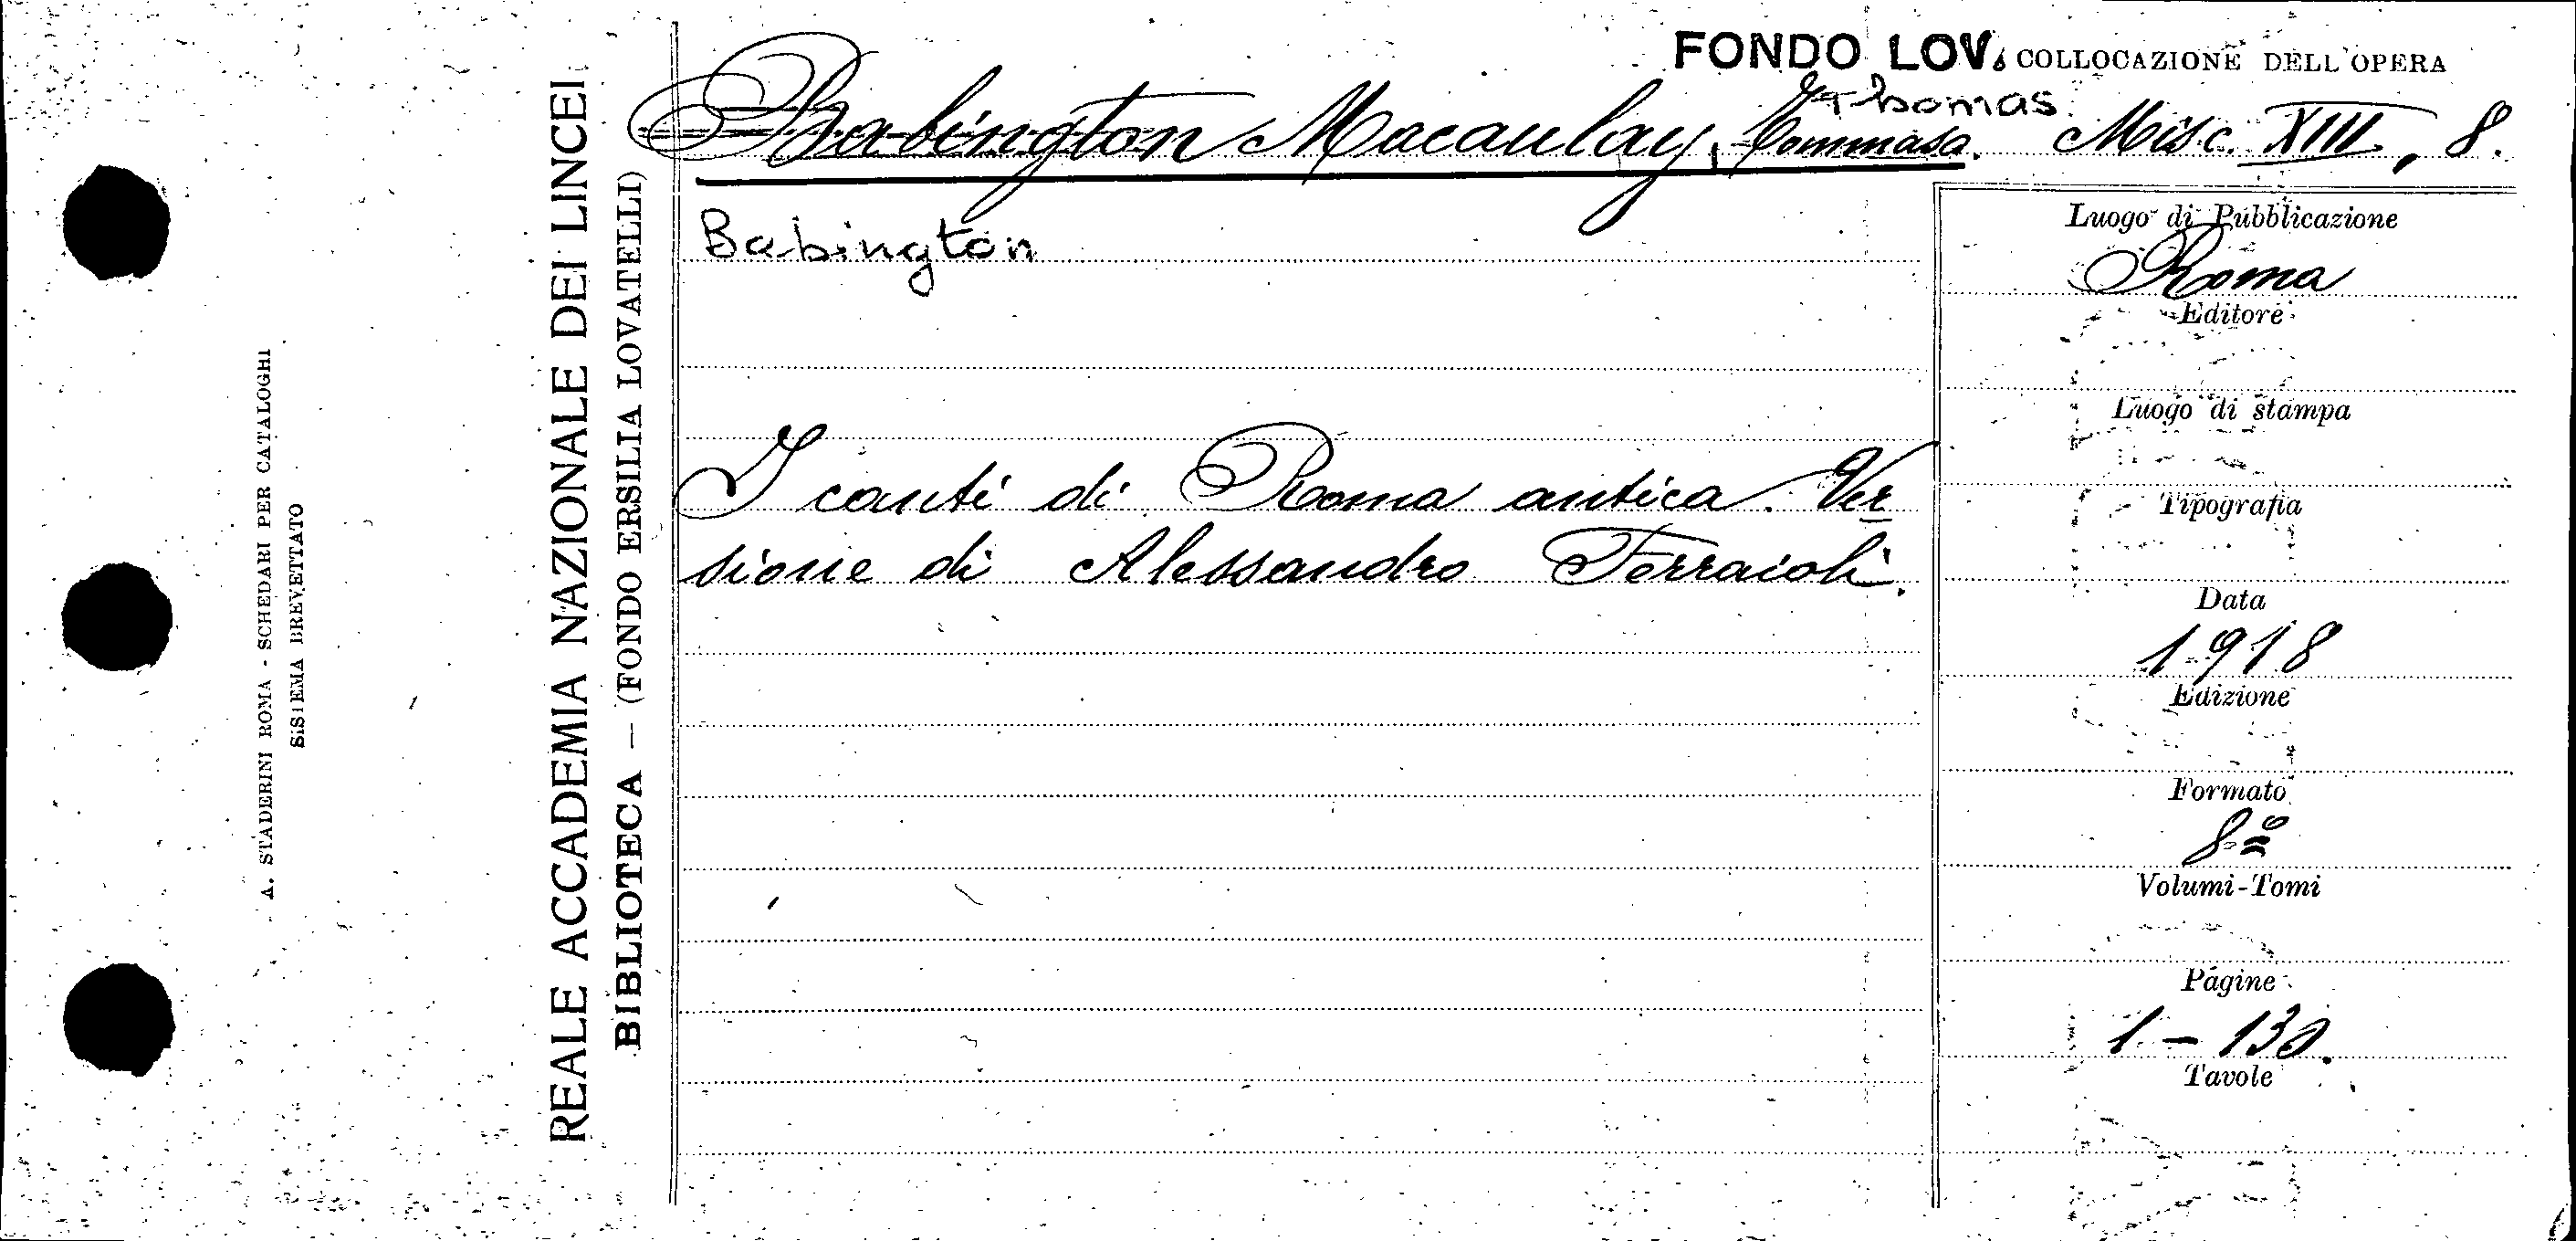 FONDO LOV. COLLOCAZIONE DELL'OPERA
Thomas
Babington Macaulay, Tommaso. Misc. XIII, 8.
Babington
I canti di Roma antica. Ver
sione di Alessandro Ferraioli.
Luogo di Pubblicazione
Roma
Editore
Luogo di stampa
Tipografia
Data
1918
Edizione
Formato
8º
Volumi-Tomi
Pagine
1 - 130.
Tavole
REALE ACCADEMIA NAZIONALE DEI LINCEI
BIBLIOTECA — (FONDO ERSILIA LOVATELLI)
A. STADERINI ROMA - SCHEDARI PER CATALOGHI
SISTEMA BREVETTATO